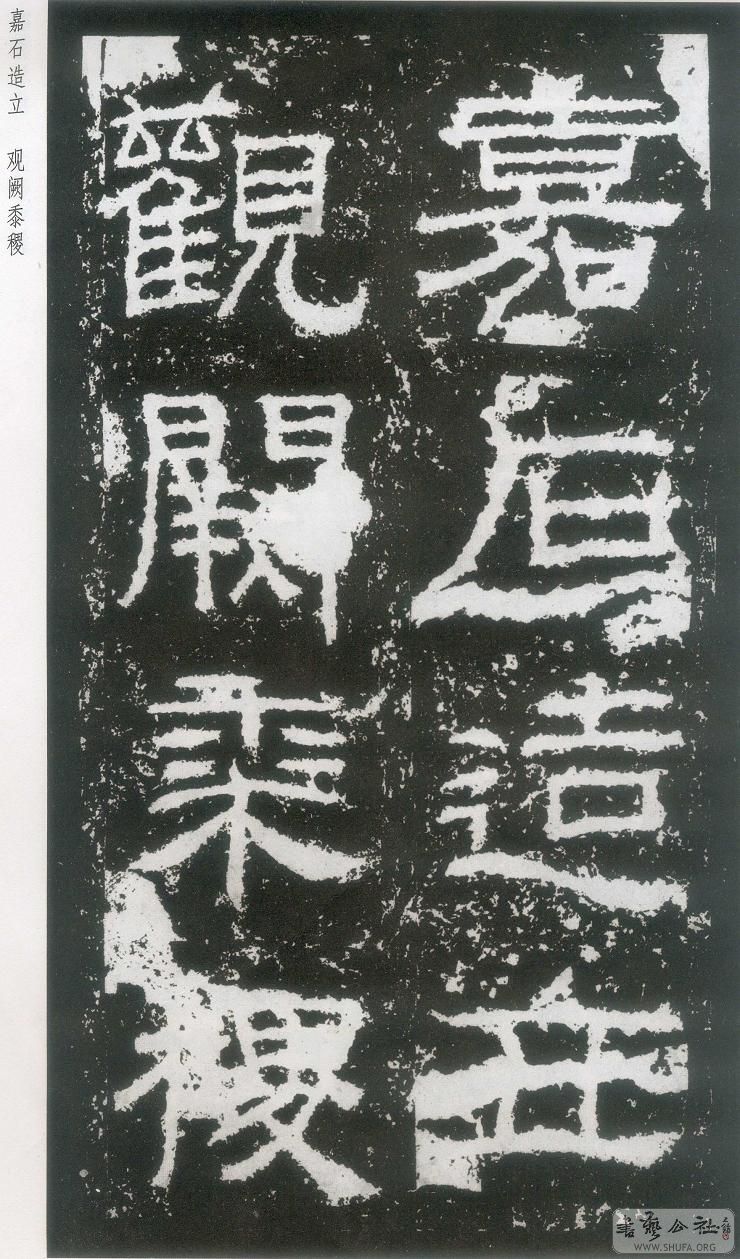 嘉石造立
觀闕黍稷
嘉石造立 观阙黍稷
書藝公社
WWW.SHUFA.ORG